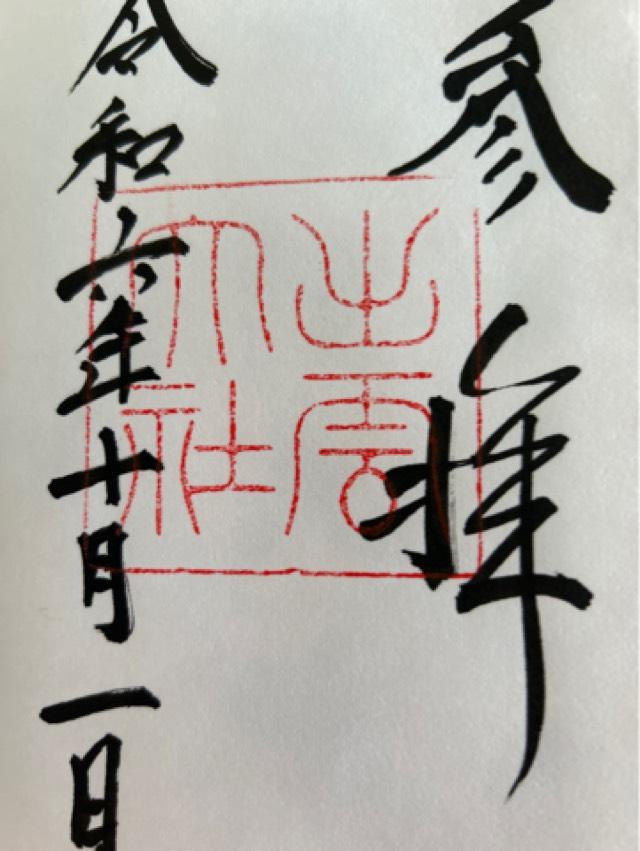 参拝
出雲
大社
令和六年十月一日